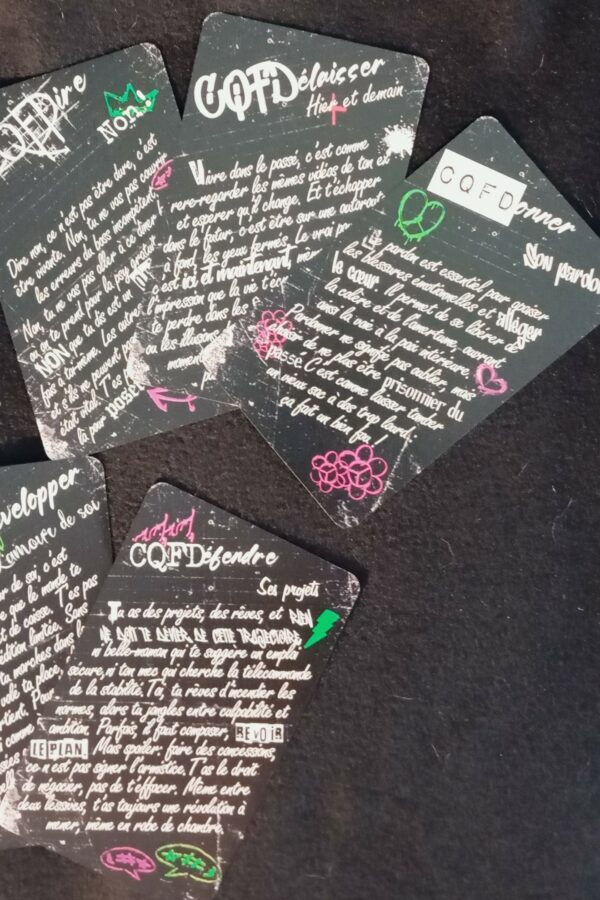 CQFDire
Non.
Dire non, ce n'est pas être dure, c'est
être vivante. Non, tu ne vas pas couvrir
les erreurs du boss incompétent.
Non, tu ne vas pas aller à ce dîner
où on te prend pour la psy gratuite.
NON que tu dis est un
fois à toi-même. Les autres
et s'ils ne peuvent pas
état vital. T'es pas
là pour
CQFDélaisser
Hier et demain
Vivre dans le passé, c'est comme
re-regarder les mêmes vidéos de ton ex
et espérer qu'il change. Et t'échapper
dans le futur, c'est être sur une autoroute
à fond, les yeux fermés. Le vrai
c'est ici et maintenant, même
l'impression que la vie t'
te perdre dans les
ou les illusions
moment
CQFDonner
Son pardon
Le pardon est essentiel pour apaiser
les blessures émotionnelles et alléger
le cœur. Il permet de se libérer de
la colère et de l'amertume, ouvrant
ainsi la voie à la paix intérieure.
Pardonner ne signifie pas oublier, mais
choisir de ne plus être prisonnier du
passé. C'est comme laisser tomber
un vieux sac à dos trop lourd,
ça fait un bien fou !
évelopper
L'amour de soi
r de soi, c'est
e que le monde te
t de caisse. T'es pas
édition limitée. Sans
tu marches dans
voilà ta place,
rtent. Pour
i comme
sées
CQFDéfendre
Ses projets
Tu as des projets, des rêves, et RIEN
NE DOIT TE DÉVIER DE CETTE TRAJECTOIRE
ni belle-maman qui te suggère un emploi
sécure, ni ton mec qui cherche la télécommande
de la stabilité. Toi, tu rêves d'incendier les
normes, alors tu jongles entre culpabilité et
ambition. Parfois, il faut composer, REVOIR
LE PLAN. Mais spoiler: faire des concessions,
ce n'est pas signer l'armistice. T'as le droit
de négocier, pas de t'effacer. Même entre
deux lessives, t'as toujours une révolution à
mener, même en robe de chambre.